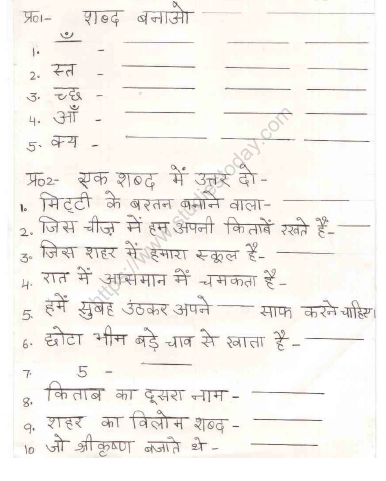 प्र०1- शब्द बनाओ
1. ँ - ____ ____ ____
2. स्त - ____ ____ ____
3. च्छ - ____ ____ ____
4. आँ - ____ ____ ____
5. क्य - ____ ____ ____
प्र०2- एक शब्द में उत्तर दो -
1. मिट्टी के बरतन बनाने वाला- ____
2. जिस चीज़ में हम अपनी किताबें रखते है- ____
3. जिस शहर में हमारा स्कूल है- ____
4. रात में आसमान में चमकता है - ____
5. हमें सुबह उठकर अपने ____ साफ करने चाहिए।
6. छोटा भीम बड़े चाव से खाता है - ____
7. 5 - ____
8. किताब का दूसरा नाम - ____
9. शहर का विलोम शब्द - ____
10 जो श्रीकृष्ण बजाते थे - ____
https://www.studiestoday.com